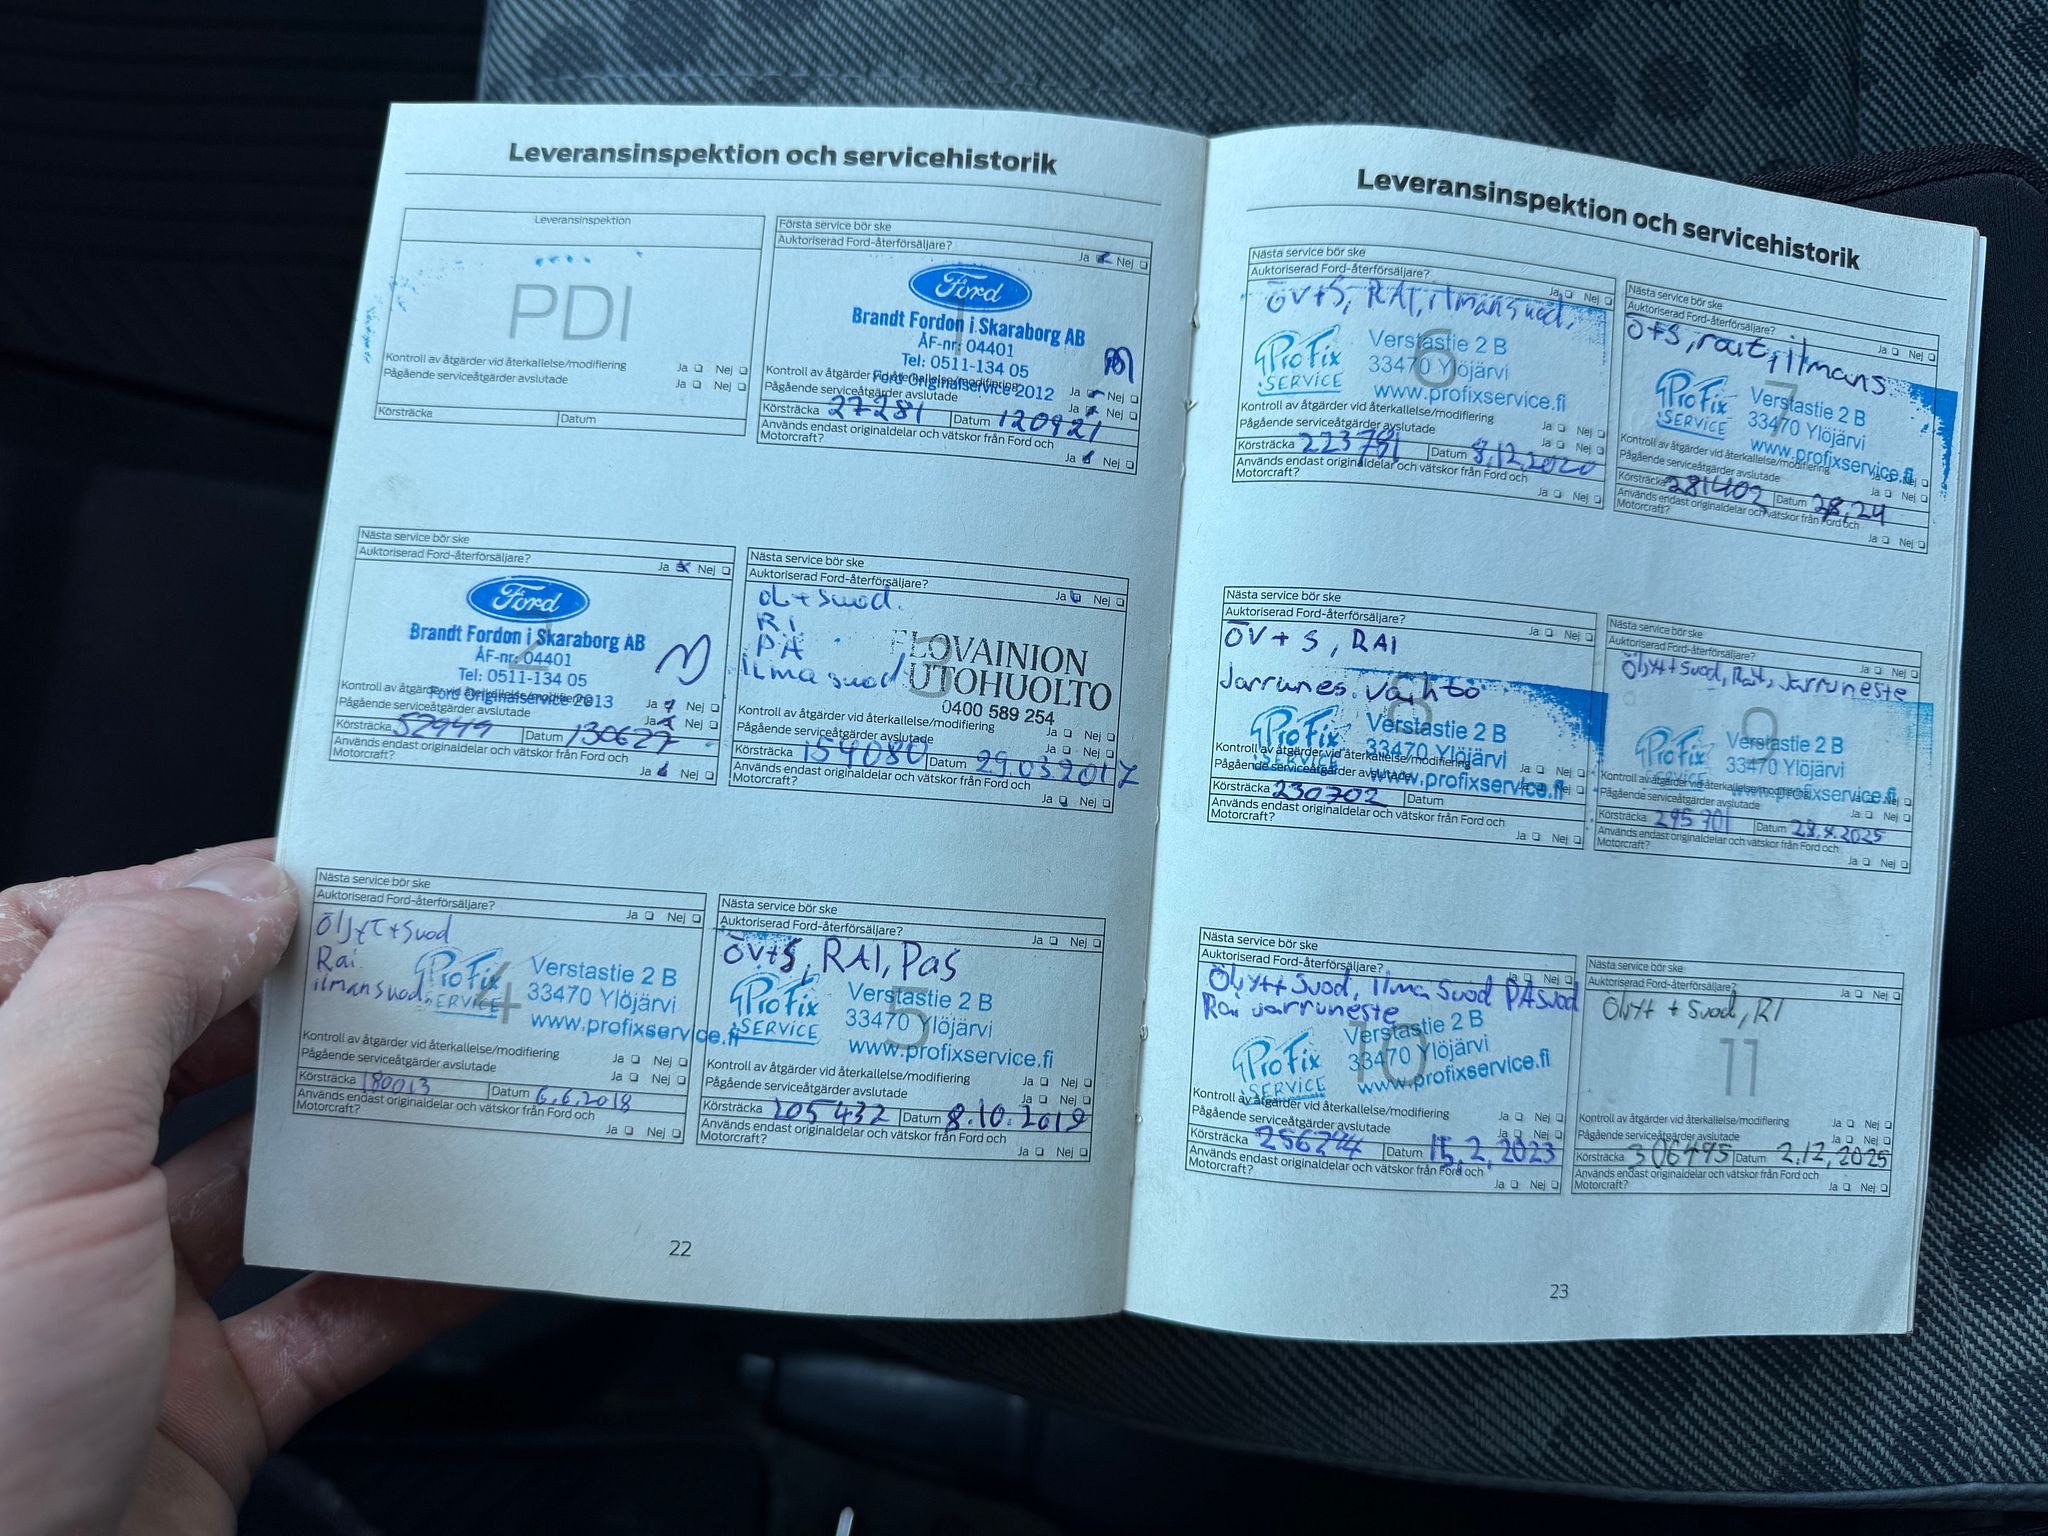 Leveransinspektion och servicehistorik
Leveransinspektion
PDI
Kontroll av åtgärder vid återkallelse/modifiering Ja Nej
Pågående serviceåtgärder avslutade Ja Nej
Körsträcka Datum
Första service bör ske
Auktoriserad Ford-återförsäljare?
Ja Nej
1
Ford
Brandt Fordon i Skaraborg AB
ÅF-nr: 04401
Tel: 0511-134 05
Kontroll av åtgärder vid återkallelse/modifiering
Ford Originalservice 2012
Ja Nej
Pågående serviceåtgärder avslutade
Ja Nej
Körsträcka 27281 Datum 120921
Används endast originaldelar och vätskor från Ford och
Motorcraft?
Ja Nej
Nästa service bör ske
Auktoriserad Ford-återförsäljare?
Ja Nej
2
Ford
Brandt Fordon i Skaraborg AB
ÅF-nr: 04401
Tel: 0511-134 05
Kontroll av åtgärder vid återkallelse/modifiering
Ford Originalservice 2013
Ja Nej
Pågående serviceåtgärder avslutade
Ja Nej
Körsträcka 52949 Datum 130627
Används endast originaldelar och vätskor från Ford och
Motorcraft?
Ja Nej
Nästa service bör ske
Auktoriserad Ford-återförsäljare?
Ja Nej
3
öL+suod.
RI
PÄ
ilmasuod
ELOVAINION
AUTOHUOLTO
0400 589 254
Kontroll av åtgärder vid återkallelse/modifiering Ja Nej
Pågående serviceåtgärder avslutade Ja Nej
Körsträcka 154080 Datum 29.03.2017
Används endast originaldelar och vätskor från Ford och
Motorcraft?
Ja Nej
Nästa service bör ske
Auktoriserad Ford-återförsäljare?
Ja Nej
4
Öljyt+suod
Rai
ilmansuod.
ProFix
SERVICE
Verstastie 2 B
33470 Ylöjärvi
www.profixservice.fi
Kontroll av åtgärder vid återkallelse/modifiering Ja Nej
Pågående serviceåtgärder avslutade Ja Nej
Körsträcka 180013 Datum 6.6.2018
Används endast originaldelar och vätskor från Ford och
Motorcraft?
Ja Nej
Nästa service bör ske
Auktoriserad Ford-återförsäljare?
Ja Nej
5
ÖV+S, RAI, Pas
ProFix
SERVICE
Verstastie 2 B
33470 Ylöjärvi
www.profixservice.fi
Kontroll av åtgärder vid återkallelse/modifiering Ja Nej
Pågående serviceåtgärder avslutade Ja Nej
Körsträcka 205432 Datum 8.10.2019
Används endast originaldelar och vätskor från Ford och
Motorcraft?
Ja Nej
22
Leveransinspektion och servicehistorik
Nästa service bör ske
Auktoriserad Ford-återförsäljare?
Ja Nej
6
ÖV+S, RAI, ilmansuod.
ProFix
SERVICE
Verstastie 2 B
33470 Ylöjärvi
www.profixservice.fi
Kontroll av åtgärder vid återkallelse/modifiering Ja Nej
Pågående serviceåtgärder avslutade Ja Nej
Körsträcka 223781 Datum 8.12.2020
Används endast originaldelar och vätskor från Ford och
Motorcraft?
Ja Nej
Nästa service bör ske
Auktoriserad Ford-återförsäljare?
Ja Nej
7
Ö+S, rait, ilmans
ProFix
SERVICE
Verstastie 2 B
33470 Ylöjärvi
www.profixservice.fi
Kontroll av åtgärder vid återkallelse/modifiering Ja Nej
Pågående serviceåtgärder avslutade Ja Nej
Körsträcka 281402 Datum
Används endast originaldelar och vätskor från Ford och
Motorcraft?
Ja Nej
Nästa service bör ske
Auktoriserad Ford-återförsäljare?
Ja Nej
8
ÖV+S, RAI
Jarrunes. vaihto
ProFix
SERVICE
Verstastie 2 B
33470 Ylöjärvi
www.profixservice.fi
Kontroll av åtgärder vid återkallelse/modifiering Ja Nej
Pågående serviceåtgärder avslutade Ja Nej
Körsträcka 230702 Datum
Används endast originaldelar och vätskor från Ford och
Motorcraft?
Ja Nej
Nästa service bör ske
Auktoriserad Ford-återförsäljare?
Ja Nej
9
Öljyt+suod, Rait, jarruneste
ProFix
SERVICE
Verstastie 2 B
33470 Ylöjärvi
www.profixservice.fi
Kontroll av åtgärder vid återkallelse/modifiering Ja Nej
Pågående serviceåtgärder avslutade Ja Nej
Körsträcka 295701 Datum
Används endast originaldelar och vätskor från Ford och
Motorcraft?
Ja Nej
Nästa service bör ske
Auktoriserad Ford-återförsäljare?
Ja Nej
10
Öljyt+suod, ilmasuod PÄsuod
Rai jarruneste
ProFix
SERVICE
Verstastie 2 B
33470 Ylöjärvi
www.profixservice.fi
Kontroll av åtgärder vid återkallelse/modifiering Ja Nej
Pågående serviceåtgärder avslutade Ja Nej
Körsträcka 256294 Datum 15.2.2023
Används endast originaldelar och vätskor från Ford och
Motorcraft?
Ja Nej
Nästa service bör ske
Auktoriserad Ford-återförsäljare?
Ja Nej
11
Öljyt + suod, RI
Kontroll av åtgärder vid återkallelse/modifiering Ja Nej
Pågående serviceåtgärder avslutade Ja Nej
Körsträcka 306495 Datum 2.12.2025
Används endast originaldelar och vätskor från Ford och
Motorcraft?
Ja Nej
23